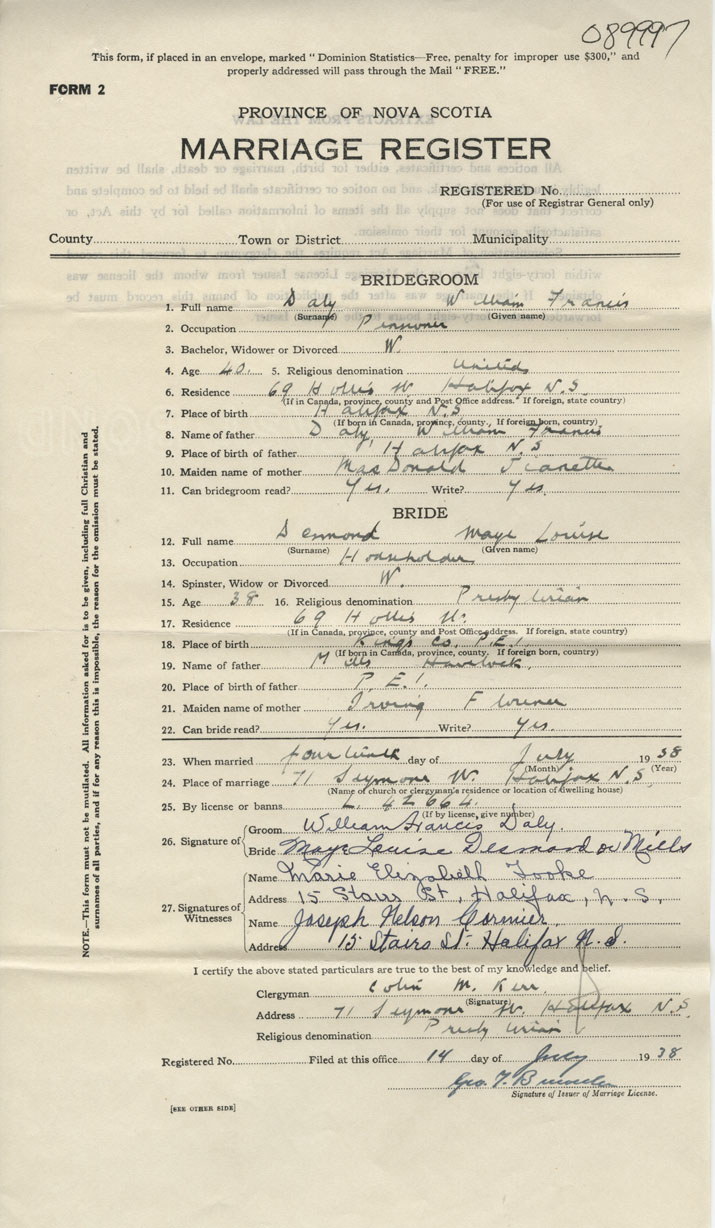 089997
This form, if placed in an envelope, marked "Dominion Statistics—Free, penalty for improper use $300," and
properly addressed will pass through the Mail "FREE."
FORM 2
PROVINCE OF NOVA SCOTIA
MARRIAGE REGISTER
REGISTERED No.
(For use of Registrar General only)
County Town or District Municipality
BRIDEGROOM
1. Full name Daly William Francis
(Surname) (Given name)
2. Occupation Pensioner
3. Bachelor, Widower or Divorced W.
4. Age 40. 5. Religious denomination United
6. Residence 69 Hollis St. Halifax N.S.
(If in Canada, province, county and Post Office address. If foreign, state country)
7. Place of birth Halifax N.S.
(If born in Canada, province, county. If foreign born, country)
8. Name of father Daly, William Francis
9. Place of birth of father Halifax N.S
10. Maiden name of mother MacDonald Jeanette
11. Can bridegroom read? Yes. Write? Yes
BRIDE
12. Full name Desmond Maye Louise
(Surname) (Given name)
13. Occupation Householder
14. Spinster, Widow or Divorced W.
15. Age 38 16. Religious denomination Presbyterian
17. Residence 69 Hollis St.
(If in Canada, province, county and Post Office address. If foreign, state country)
18. Place of birth Kings Co. P.E.I.
(If born in Canada, province, county. If foreign born, country)
19. Name of father Mills Havelock
20. Place of birth of father P.E.I.
21. Maiden name of mother Irving Florence
22. Can bride read? Yes. Write? Yes.
23. When married fourteenth day of July 1938
(Month) (Year)
24. Place of marriage 71 Seymour St. Halifax N.S
(Name of church or clergyman's residence or location of dwelling house)
25. By license or banns L. 42664.
(If by license, give number)
26. Signature of Groom William Francis Daly.
Bride Maye Louise Desmond or Mills
27. Signatures of Witnesses
Name Marie Elizabeth Tooke
Address 15 Stairs St, Halifax, N.S,
Name Joseph Nelson Cormier
Address 15 Stairs St. Halifax N.S.
I certify the above stated particulars are true to the best of my knowledge and belief.
Clergyman Colin M. Kerr
(Signature)
Address 71 Seymour St. Halifax N.S
Religious denomination Presbyterian
Registered No. Filed at this office 14 day of July 1938
Geo. T.
Signature of Issuer of Marriage License.
[SEE OTHER SIDE]
NOTE.—This form must not be mutilated. All information asked for is to be given, including full Christian and
surnames of all parties, and if for any reason this is impossible, the reason for the omission must be stated.